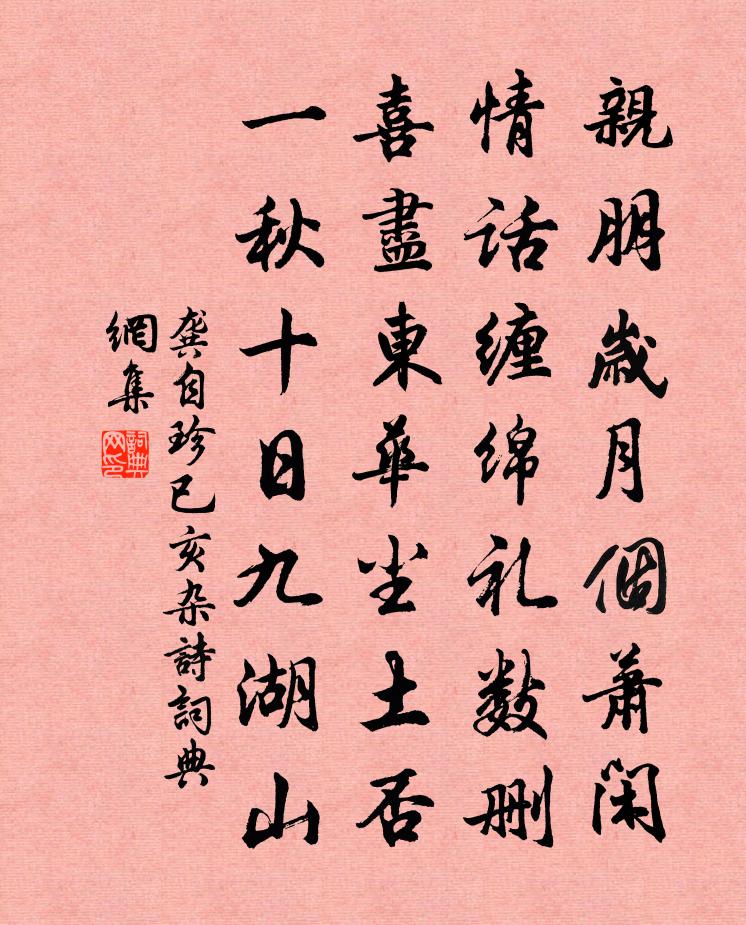 親朋歲月個蕭閑
情话纏绵礼数删
喜盡東華尘土否
一秋十日九湖山
龔自珍已亥杂詩詞典
網集
詞典
网印